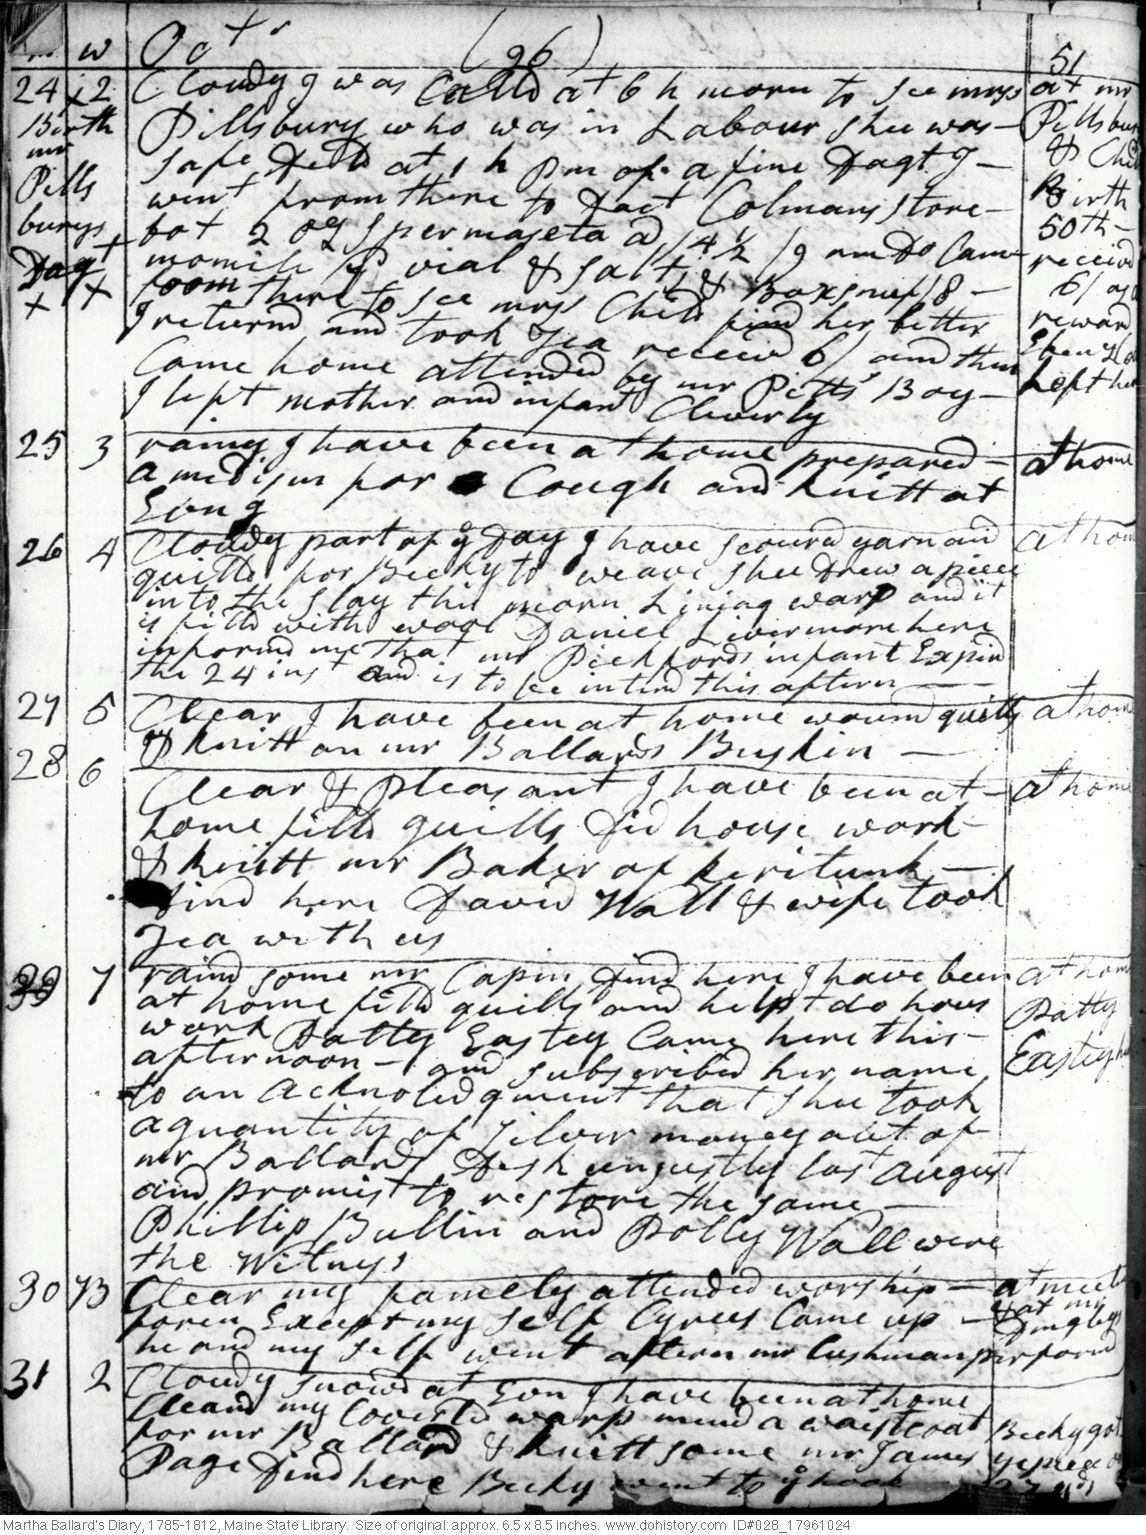 m w Oct r (96) 51
24 2 Cloudy I was Calld at 6 h morn to see mrs at mr
Birth Pillsbury who was in Labour shee was Pillsbury
mr safe deld at 1 h pm of a fine dagt I & Chil
Pills went from there to Doct Colmans store Birth
burys bot 2 oz spermaseta 4½ Cam 50th
Dagt momile vial & salts & Box snuf /8 received
x x from there to see mrs Child find her better 6/ as
I returnd and took Tea receivd 6/ and then reward
Came home attended by mr Pitts' Boy
I left mother and infant Cleverly Left her
25 3 rainy I have been at home prepared at home
a medisin for Cough and knitt at
Evng
26 4 Cloudy part of ye day I have scourd yarn and at hom
quilld for Becky to weave shee drew a piece
into the slay this morn Lining warp and it
is filld with wool Daniel Livermore here
informd me that mr Pickfords infant Expird
the 24 inst and is to be interd this aftern
27 5 Clear I have been at home wound quills at hom
& knitt on mr Ballards Buskin
28 6 Clear & pleasant I have been at at home
home filld quills did house work
& knitt mr Baker of keritunk
dind here David Wall & wife took
Tea with us
29 7 raind some mr Capin dind here I have been at hom
at home filld quills and helpt do hous Patty
work Patty Eastey Came here this Eastey he
afternoon and subscribed her name
to an acknoledgment that shee took
a quantity of silver money out of
mr Ballards Desk unjustly last august
and promist to restore the same
Phillip Bullin and Polly Wall were
the Witnys
30 73 Clear my famely attended worship at meet
foren Except my self Cyrus Came up & at mr Dingleys
he and my self went aftern mr Cushman performd
31 2 Cloudy snowd at Evn I have been at home
Cleand my Coverld warp mend a waistcoat Becky got
for mr Ballard & knitt some mr James ye piece o
Page dind here Becky went to ye hook 27 yds
Martha Ballard's Diary, 1785-1812, Maine State Library. Size of original: approx. 6.5 x 8.5 inches. www.dohistory.com ID#028_17961024